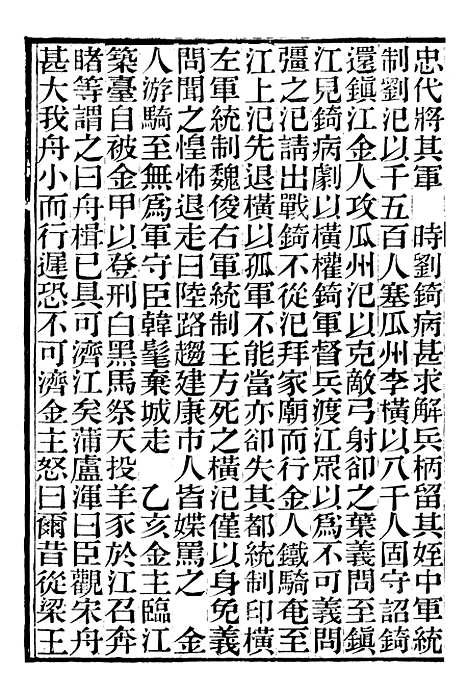 忠代將其軍　時劉錡病甚求解兵柄留其姪中軍統
制劉汜以千五百人塞瓜州李橫以八千人固守詔錡
還鎭江金人攻瓜州汜以克敵弓射卻之葉義問至鎭
江見錡病劇以橫權錡軍督兵渡江眾以爲不可義問
彊之汜請出戰錡不從汜拜家廟而行金人鐵騎奄至
江上汜先退橫以孤軍不能當亦卻失其都統制印橫
左軍統制魏俊右軍統制王方死之橫汜僅以身免義
問聞之惶怖退走曰陸路趨建康市人皆媟罵之　金
人游騎至無爲軍守臣韓髦棄城走　乙亥金主臨江
築臺自被金甲以登刑白黑馬祭天投羊豕於江召奔
睹等謂之曰舟楫已具可濟江矣蒲盧渾曰臣觀宋舟
甚大我舟小而行遲恐不可濟金主怒曰爾昔從梁王